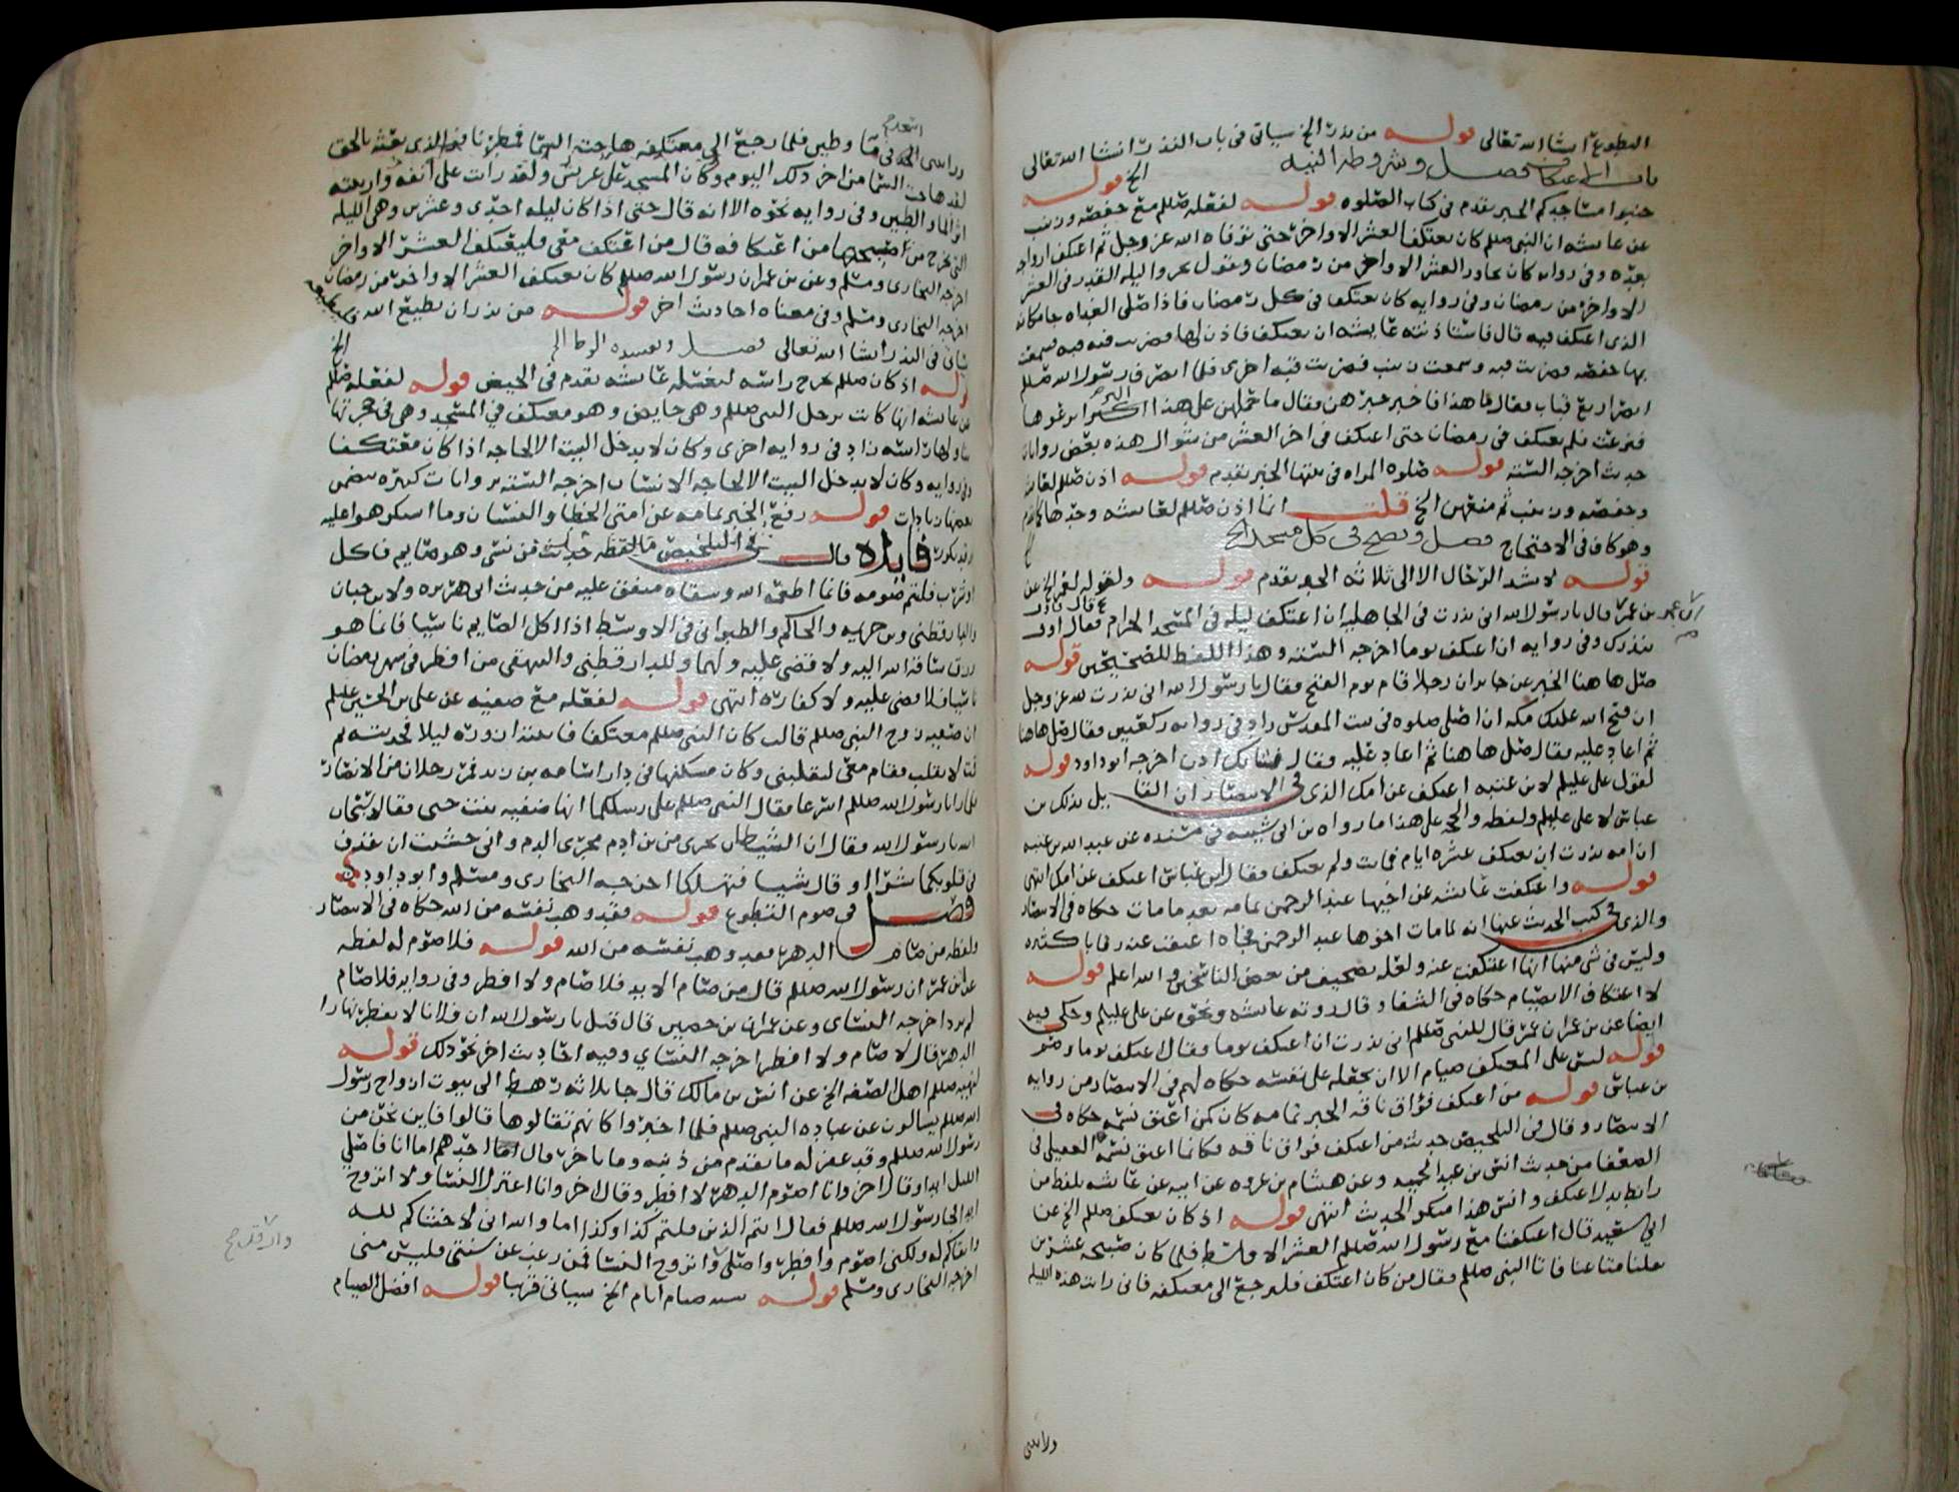 التطوع ان شا الله تعالى قوله من نذر الخ سياتي في باب النذر انشا الله تعالى
باب الاعتكاف فصل وشروطه النيه الخ قوله
جنبوا مساجدكم الخبر تقدم في كتاب الصلوه قوله لفعله صللم مع حفصه وزينب
عن عائشه ان النبي صللم كان يعتكف العشر الاواخر حتى توفاه الله عز وجل ثم اعتكف ازواجه
بعده وفي روايه كان يجاور العشر الاواخر من رمضان ويقول تحروا ليله القدر في العشر
الاواخر من رمضان وفي روايه كان يعتكف في كل رمضان فاذا صلى الغداه جا مكانه
الذي اعتكف فيه قال فاستاذنته عايشه ان تعتكف فاذن لها فضربت فيه قبه فسمعت
بها حفصه فضربت قبه وسمعت زينب فضربت قبه اخرى فلما انصرف رسول الله صللم
ابصر اربع قباب فقال ما هذا فاخبر خبرهن فقال ما حملهن على هذا البر انزعوها
فنزعت فلم يعتكف في رمضان حتى اعتكف في اخر العشر من شوال هذه بعض روايات
حديث اخرجه السته قوله صلوه المراه في بيتها الخبر تقدم قوله اذن صللم لعائشه
وحفصه وزينب ثم منعهن الخ قلت انما اذن صللم لعائشه وحدها كما تقدم
وهو كاف في الاحتجاج فصل ويصح في كل مسجد الخ
قوله لا تشد الرحال الا الى ثلاثه الخبر تقدم قوله ولقوله لعمر الخ عن
بن عمر قال يا رسول الله اني نذرت في الجاهليه ان اعتكف ليله في المسجد الحرام فقال اوف
بنذرك وفي روايه ان اعتكف يوما اخرجه السته وهذا اللفظ للصحيحين قوله
صل ها هنا الخبر عن جابر ان رجلا قام يوم الفتح فقال يا رسول الله اني نذرت لله عز وجل
ان فتح الله عليك مكه ان اصلي صلوه في بيت المقدس زاد في روايه ركعتين فقال صل هاهنا
ثم اعاد عليه فقال صل ها هنا ثم اعاد عليه فقال شانك اذن اخرجه ابو داود قوله
لقول علي عليلم لابن عتبه اعتكف عن امك الذي في الانتصار ان القايل بذلك بن
عباس لا علي عليلم ولفظه والحجه على هذا ما رواه بن ابي شيبه في مسنده عن عبيد الله بن عتبه
ان امه نذرت ان تعتكف عشره ايام فماتت ولم تعتكف فقال ابن عباس اعتكف عن امك انتهى
قوله واعتكفت عائشه عن اخيها عبد الرحمن تمامه بعد ما مات حكاه في الانتصار
والذي في كتب الحديث عنها انه لما مات اخوها عبد الرحمن فجاه اعتقت عنه رقابا كثيره
وليس في شي منها انها اعتكفت عنه ولعله تصحيف من بعض الناسخين والله اعلم قوله
لا اعتكاف الا بصيام حكاه في الشفا وقال روته عائشه ونحوه عن علي عليلم وحكى فيه
ايضا عن بن عمر ان عمر قال للنبي صللم اني نذرت ان اعتكف يوما وقال اعتكف يوما وصم
قوله ليس على المعتكف صيام الا ان يجعله على نفسه حكاه لهم في الانتصار من روايه
بن عباس قوله من اعتكف فواق ناقه الخبر تمامه كان كمن اعتق نسمه حكاه في
الانتصار وقال في التلخيص حديث من اعتكف فواق ناقه فكانما اعتق نسمه العقيلي في
الضعفا من حديث انس بن عبد الحميد وعن هشام بن عروه عن ابيه عن عائشه بلفظ من
رابط بدل اعتكف وانس هذا منكر الحديث انتهى قوله اذ كان يعتكف صللم الخ عن
ابي سعيد قال اعتكفنا مع رسول الله صللم العشر الاوسط فلما كان صبيحه عشرين
نقلنا متاعنا فاتانا النبي صللم فقال من كان اعتكف فليرجع الى معتكفه فاني رايت هذه الليله
ورايتني
ورايتني اسجد في ما وطين فلما رجع الى معتكفه هاجت السما فمطرنا فوالذي بعثه بالحق
لقد هاجت السما من اخر ذلك اليوم وكان المسجد على عريش ولقد رايت على انفه وارنبته
اثر الما والطين وفي روايه نحوه الا انه قال حتى اذا كان ليله احدى وعشرين وهي الليله
التي يخرج من صبيحتها من اعتكافه قال من اعتكف معي فليعتكف العشر الاواخر
اخرجه البخاري ومسلم وعن بن عمر ان رسول الله صللم كان يعتكف العشر الاواخر من رمضان
اخرجه البخاري ومسلم وفي معناه احاديث اخر قوله من نذر ان يطيع الله فليطعه
ياتي في النذر انشا الله تعالى فصل ويفسده الوطا الخ
قوله اذ كان صللم يخرج راسه لتغسله عائشه تقدم في الحيض قوله لفعله صللم
عن عائشه انها كانت ترجل النبي صللم وهي حايض وهو معتكف في المسجد وهي في حجرتها
يناولها راسه زاد في روايه اخرى وكان لا يدخل البيت الا لحاجه اذا كان معتكفا
وفي روايه وكان لا يدخل البيت الا لحاجه الانسان اخرجه السته بروايات كثيره تتضمن
بعضها زيادات قوله رفع الخبر تمامه عن امتي الخطا والنسيان وما استكرهوا عليه
وقد تكرر فايده قال في التلخيص ما لفظه حديث من نسي وهو صايم فاكل
او شرب فليتم صومه فانما اطعمه الله وسقاه متفق عليه من حديث ابي هريره ولابن حبان
والدارقطني وبن خزيمه والحاكم والطبراني في الاوسط اذا اكل الصايم ناسيا فانما هو
رزق ساقه الله اليه ولا قضى عليه ولهما وللدارقطني والبيهقي من افطر في شهر رمضان
ناسيا فلا قضى عليه ولا كفاره انتهى قوله لفعله مع صفيه عن علي بن الحسين عليلم
ان صفيه زوج النبي صللم قالت كان النبي صللم معتكفا فاتيته ازوره ليلا فحدثته ثم
قمت لانقلب فقام معي ليقلبني وكان مسكنها في دار اسامه بن زيد فمر رجلان من الانصار
فلما رايا رسول الله صللم اسرعا فقال النبي صللم على رسلكما انها صفيه بنت حيي فقالا سبحان
الله يا رسول الله فقال ان الشيطان يجري من بن ادم مجرى الدم واني خشيت ان يقذف
في قلوبكما شرا او قال شيا فتهلكا اخرجه البخاري ومسلم وابو داود
فصل في صوم التطوع قوله فقد وهب نفسه من الله حكاه في الانتصار
ولفظه من صام الدهر فقد وهب نفسه من الله قوله فلا صوم له لفظه
عن بن عمر ان رسول الله صللم قال من صام الابد فلا صام ولا افطر وفي روايه فلا صام
لم يزد اخرجه النسائي وعن عمران بن حصين قال قيل يا رسول الله ان فلانا لا يفطر نهارا
الدهر قال لا صام ولا افطر اخرجه النسائي وفيه احاديث اخر نحو ذلك قوله
لنهيه صللم اهل الصفه الخ عن انس بن مالك قال جا ثلاثه رهط الى بيوت ازواج رسول
الله صللم يسالون عن عباده النبي صللم فلما اخبروا كانهم تقالوها قالوا فاين نحن من
رسول الله صللم وقد غفر له ما تقدم من ذنبه وما تاخر قال احدهم اما انا فاصلي
الليل ابدا وقال اخر وانا اصوم الدهر لا افطر وقال اخر وانا اعتزل النسا ولا اتزوج
ابدا فجا رسول الله صللم فقال انتم الذين قلتم كذا وكذا اما والله اني لاخشاكم لله
واتقاكم له ولكني اصوم وافطر واصلي وانزوج النسا فمن رغب عن سنتي فليس مني
اخرجه البخاري ومسلم قوله سنه صيام ايام الخ سياتي قريبا قوله افضل الصيام